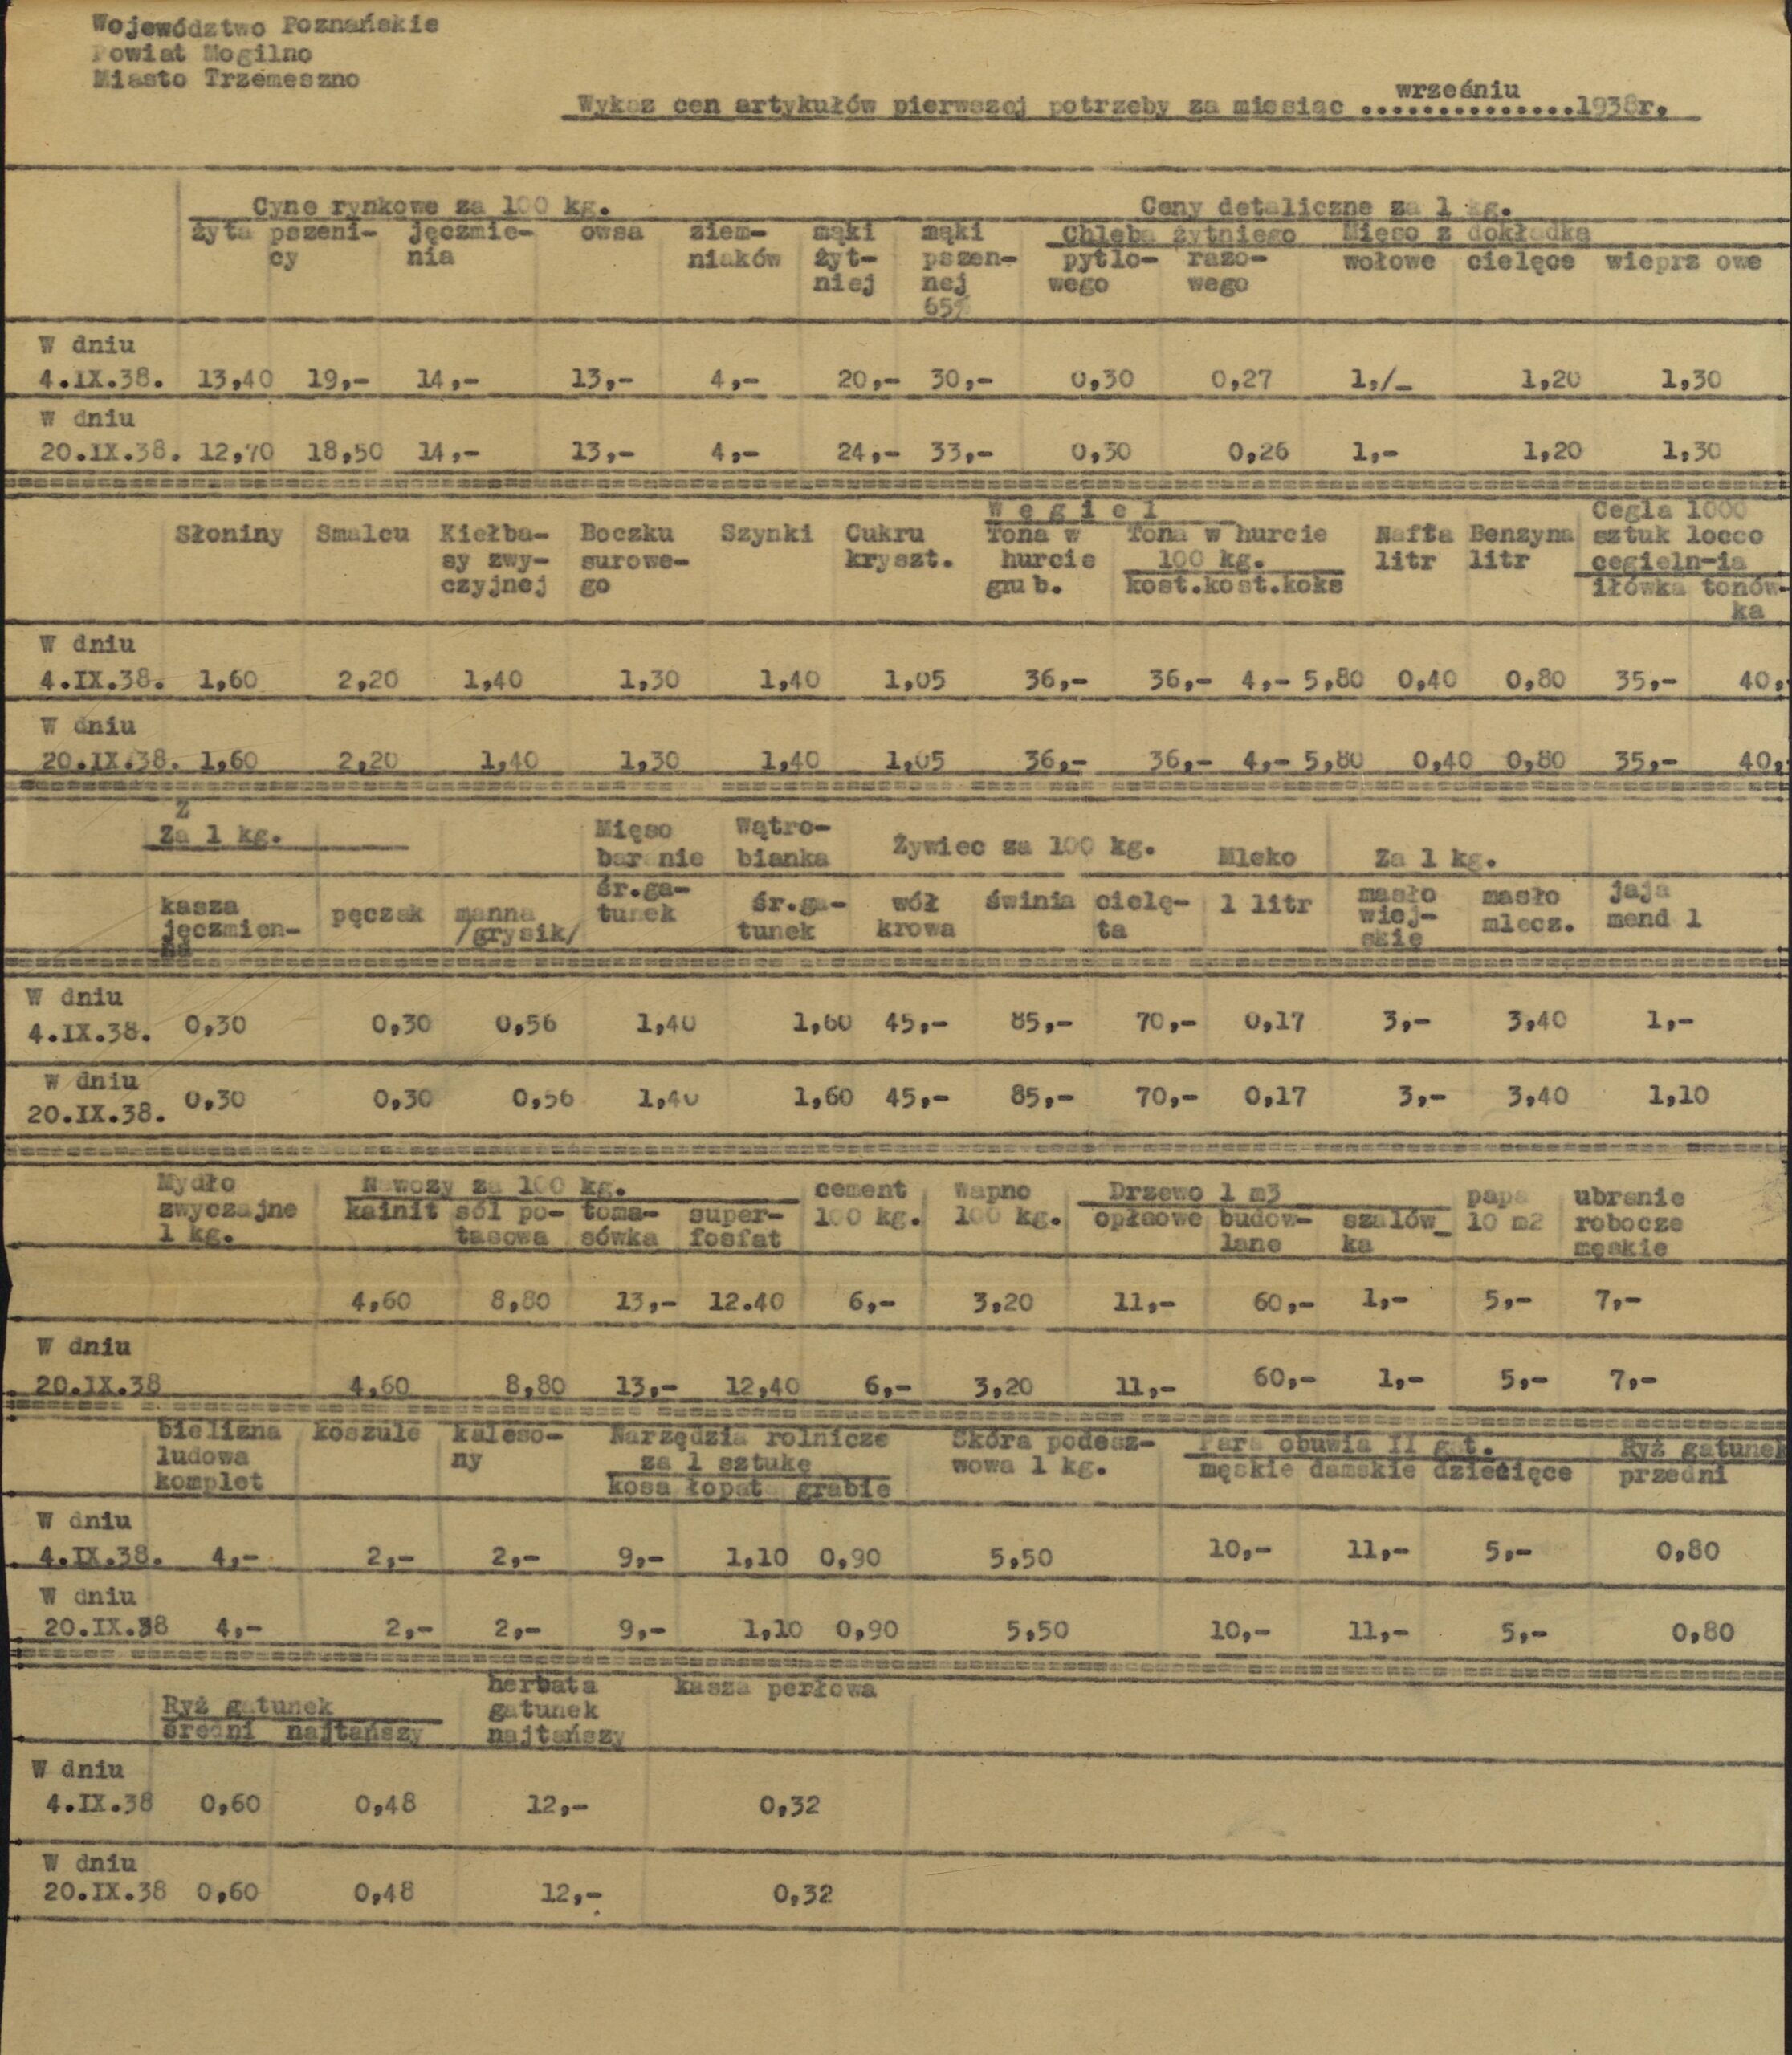 Województwo Poznańskie
Powiat Mogilno
Miasto Trzemeszno
wrześniu
Wykaz cen artykułów pierwszej potrzeby za miesiąc ..............1938r,
Cyne rynkowe za 100 kg. Ceny detaliczne za 1 kg.
żyta pszeni- jęczmie- owsa ziem- mąki mąki Chleba żytniego Mięso z dokładką
cy nia niaków żyt- pszen- pytlo- razo- wołowe cielęce wieprz owe
niej nej wego wego
65%
W dniu
4.IX.38. 13,40 19,- 14,- 13,- 4,- 20,- 30,- 0,30 0,27 1,/- 1,20 1,30
W dniu
20.IX.38. 12,70 18,50 14,- 13,- 4,- 24,- 33,- 0,30 0,26 1,- 1,20 1,30
W ę g i e l Cegla 1000
Słoniny Smalcu Kiełba- Boczku Szynki Cukru Tona w Tona w hurcie Nafta Benzyna sztuk locco
sy zwy- surowe- kryszt. hurcie 100 kg. litr litr cegieln-ia
czyjnej go grub. kost.kost.koks iłówka tonów-
ka
W dniu
4.IX.38. 1,60 2,20 1,40 1,30 1,40 1,05 36,- 36,- 4,- 5,80 0,40 0,80 35,- 40,
W dniu
20.IX.38. 1,60 2,20 1,40 1,30 1,40 1,05 36,- 36,- 4,- 5,80 0,40 0,80 35,- 40,
Z
Za 1 kg. Mięso Wątro- Żywiec za 100 kg. Mleko Za 1 kg.
baranie bianka
kasza pęczak manna śr.ga- śr.ga- wół świnia cielę- 1 litr masło masło jaja
jęczmien- /grysik/ tunek tunek krowa ta wiej- mlecz. mend 1
na skie
W dniu
4.IX.38. 0,30 0,30 0,56 1,40 1,60 45,- 85,- 70,- 0,17 3,- 3,40 1,-
W dniu
20.IX.38. 0,30 0,30 0,56 1,40 1,60 45,- 85,- 70,- 0,17 3,- 3,40 1,10
Mydło Nawozy za 100 kg. cement Wapno Drzewo 1 m3 papa ubranie
zwyczajne kainit sól po- toma- super- 100 kg. 100 kg. opłaowe budow- szalów_ 10 m2 robocze
1 kg. tasowa sówka fosfat lane ka męskie
4,60 8,80 13,- 12.40 6,- 3,20 11,- 60,- 1,- 5,- 7,-
W dniu
20.IX.38 4,60 8,80 13,- 12,40 6,- 3,20 11,- 60,- 1,- 5,- 7,-
bielizna koszule kaleso- Narzędzia rolnicze Skóra podesz- Para obuwia II gat. Ryż gatunek
ludowa ny za 1 sztukę wowa 1 kg. męskie damskie dziecięce przedni
komplet kosa łopata grabie
W dniu
4.IX.38. 4,- 2,- 2,- 9,- 1,10 0,90 5,50 10,- 11,- 5,- 0,80
W dniu
20.IX.38 4,- 2,- 2,- 9,- 1,10 0,90 5,50 10,- 11,- 5,- 0,80
Ryż gatunek herbata kasza perłowa
średni najtańszy gatunek
najtańszy
W dniu
4.IX.38 0,60 0,48 12,- 0,32
W dniu
20.IX.38 0,60 0,48 12,- 0,32